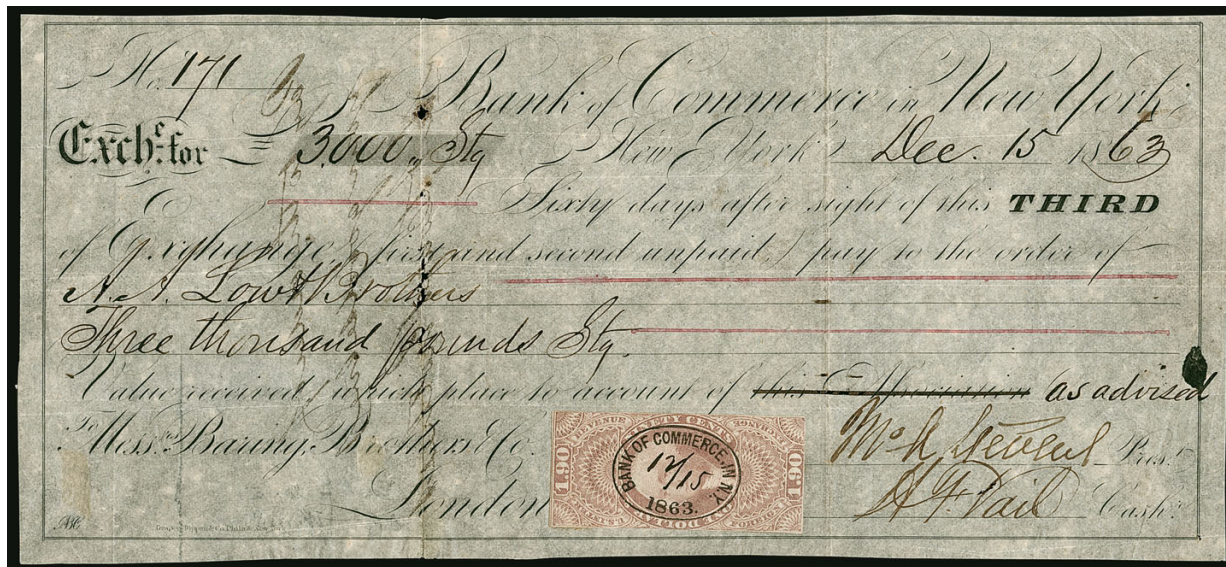 No. 171 Bank of Commerce in New York
Exche. for £ 3,000 „ Stg New York Dec. 15 1863
Sixty days after sight of this THIRD
of Exchange, first and second unpaid, pay to the order of
A. A. Low & Brothers
Three thousand pounds Stg.
Value received, which place to account of this as advised
To Messrs. Baring, Brothers & Co.
London
REVENUE NINETY CENTS
$1.90
BANK OF COMMERCE, IN N.Y.
12/15
1863.
ONE DOLLAR
Stevens Prest.
H. F. Vail Cashr.